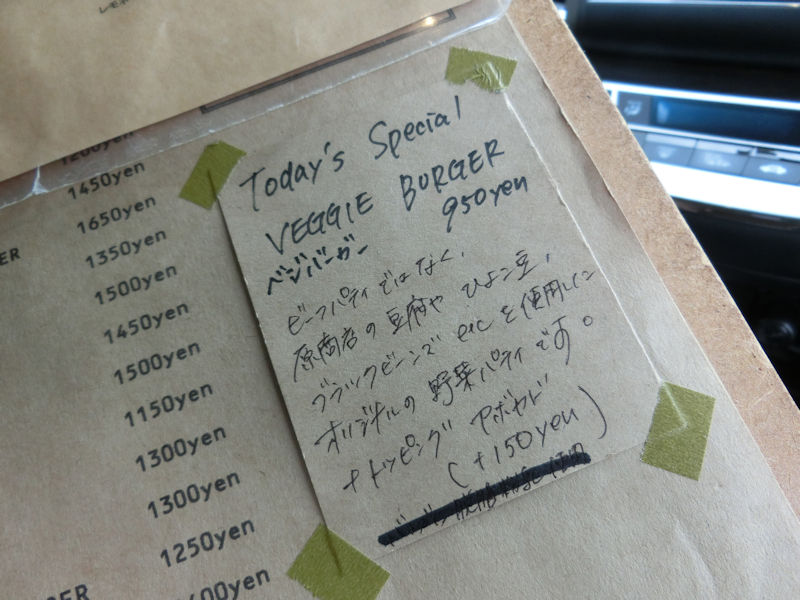 レモネ
1200yen
1450yen
1650yen
ER 1350yen
1500yen
1450yen
1500yen
1150yen
1300yen
1300yen
1250yen
GER
Today's Special
VEGGIE BURGER
950yen
ベジバーガー
ビーフパティではなく、
原商店の豆腐や ひよこ豆、
ブラックビーンズ etc を使用した
オリジナルの野菜パティです。
+トッピング アボカド
(+150yen)